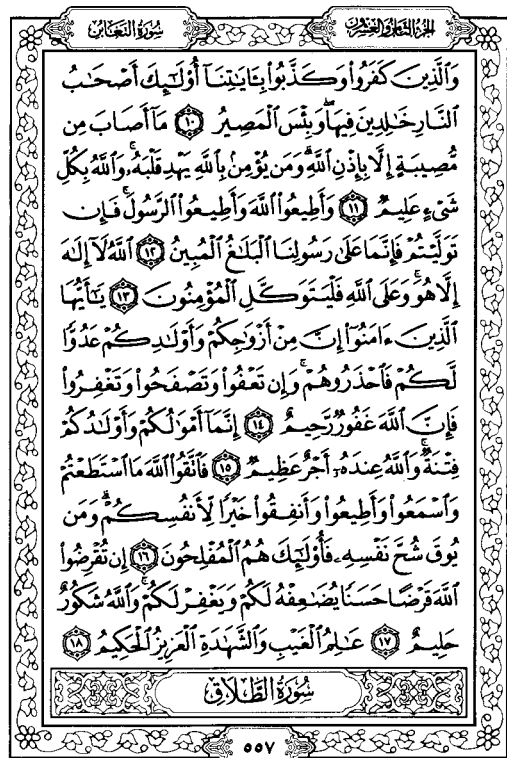 سُورَةُ التَّغَابُنِ
الجزء الثامن والعشرون
وَالَّذِينَ كَفَرُوا۟ وَكَذَّبُوا۟ بِـَٔايَـٰتِنَآ أُو۟لَـٰٓئِكَ أَصْحَـٰبُ
ٱلنَّارِ خَـٰلِدِينَ فِيهَا ۖ وَبِئْسَ ٱلْمَصِيرُ ١٠ مَآ أَصَابَ مِن
مُّصِيبَةٍ إِلَّا بِإِذْنِ ٱللَّهِ ۗ وَمَن يُؤْمِنۢ بِٱللَّهِ يَهْدِ قَلْبَهُۥ ۚ وَٱللَّهُ بِكُلِّ
شَىْءٍ عَلِيمٌ ١١ وَأَطِيعُوا۟ ٱللَّهَ وَأَطِيعُوا۟ ٱلرَّسُولَ ۚ فَإِن
تَوَلَّيْتُمْ فَإِنَّمَا عَلَىٰ رَسُولِنَا ٱلْبَلَـٰغُ ٱلْمُبِينُ ١٢ ٱللَّهُ لَآ إِلَـٰهَ
إِلَّا هُوَ ۚ وَعَلَى ٱللَّهِ فَلْيَتَوَكَّلِ ٱلْمُؤْمِنُونَ ١٣ يَـٰٓأَيُّهَا
ٱلَّذِينَ ءَامَنُوٓا۟ إِنَّ مِنْ أَزْوَٰجِكُمْ وَأَوْلَـٰدِكُمْ عَدُوًّا
لَّكُمْ فَٱحْذَرُوهُمْ ۚ وَإِن تَعْفُوا۟ وَتَصْفَحُوا۟ وَتَغْفِرُوا۟
فَإِنَّ ٱللَّهَ غَفُورٌ رَّحِيمٌ ١٤ إِنَّمَآ أَمْوَٰلُكُمْ وَأَوْلَـٰدُكُمْ
فِتْنَةٌ ۚ وَٱللَّهُ عِندَهُۥٓ أَجْرٌ عَظِيمٌ ١٥ فَٱتَّقُوا۟ ٱللَّهَ مَا ٱسْتَطَعْتُمْ
وَٱسْمَعُوا۟ وَأَطِيعُوا۟ وَأَنفِقُوا۟ خَيْرًا لِّأَنفُسِكُمْ ۗ وَمَن
يُوقَ شُحَّ نَفْسِهِۦ فَأُو۟لَـٰٓئِكَ هُمُ ٱلْمُفْلِحُونَ ١٦ إِن تُقْرِضُوا۟
ٱللَّهَ قَرْضًا حَسَنًا يُضَـٰعِفْهُ لَكُمْ وَيَغْفِرْ لَكُمْ ۚ وَٱللَّهُ شَكُورٌ
حَلِيمٌ ١٧ عَـٰلِمُ ٱلْغَيْبِ وَٱلشَّهَـٰدَةِ ٱلْعَزِيزُ ٱلْحَكِيمُ ١٨
سُورَةُ الطَّلَاقِ
٥٥٧